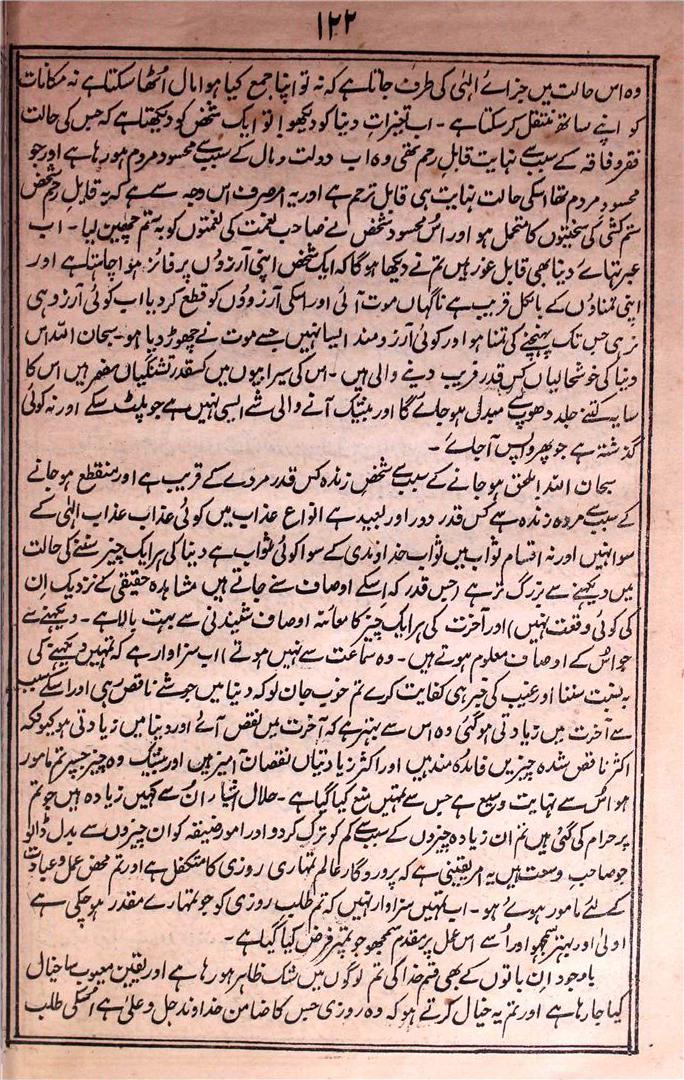 ۱۲۲
وہ اس حالت میں جزائے الٰہی کی طرف جاتا ہے کہ نہ تو اپنا جمع کیا ہوا مال اُٹھا سکتا ہے نہ مکانات
کو اپنے ساتھ منتقل کر سکتا ہے ۔ اب تغیرات دنیا کو دیکھو! تو ایک شخص کو دیکھتا ہے کہ جس کی حالت
فقر و فاقہ کے سبب سے نہایت قابل رحم تھی وہ اب دولت و مال کے سبب سے محسود مردم ہو رہا ہے اور جو
محسود مردم تھا اسکی حالت نہایت ہی قابل ترحم ہے اور یہ امر صرف اس وجہ سے ہے کہ یہ قابل رحم شخص
ستم کشی کی سختیوں کا متحمل ہو اور اُس محسود شخص نے صاحب نعمت کی نعمتوں کو بہ ستم چھین لیا ۔ اب
عبرتہائے دینا بھی قابل غور ہیں تم نے دیکھا ہوگا کہ ایک شخص اپنی آرزوں پر فائز ہوا چاہتا ہے اور
اپنی تمناؤں کے بالکل قریب ہے ناگہاں موت آئی اور اسکی آرزوؤں کو قطع کر دیا اب کوئی آرزو ہی
نہ رہی جس تک پہنچنے کی تمنا ہو اور کوئی آرزومند ایسا نہیں جسے موت نے چھوڑ دیا ہو ۔ سبحان اللہ اس
دنیا کی خوشحالیاں کس قدر فریب دینے والی ہیں ۔ اس کی سیرابیوں میں کسقدر تشنگیاں مضمر ہیں اس کا
سایہ کتنے جلد دھوپ سے مبدل ہو جائے گا اور بیشک آنے والی شے ایسی نہیں ہے جو پلٹ سکے اور نہ کوئی
گذشتہ ہے جو پھر واپس آ جائے ۔
سبحان اللہ ملحق ہو جانے کے سبب سے شخص زندہ کس قدر مردے کے قریب ہے اور منقطع ہو جانے
کے سبب سے مردہ زندہ سے کس قدر دور اور بعید ہے انواع عذاب میں کوئی عذاب عذاب الٰہی کے
سوا نہیں اور نہ اقسام ثواب میں ثواب خداوندی کے سوا کوئی ثواب ہے دنیا کی ہر ایک چیز سننے کی حالت
میں دیکھنے سے بزرگ تر ہے (جس قدر کہ اسکے اوصاف سنے جاتے ہیں مشاہدہ حقیقی کے نزدیک اِن
کی کوئی وقعت نہیں) اور آخرت کی ہر ایک چیز کا معائنہ اوصاف شنیدنی سے بہت بالا ہے ۔ دیکھنے سے
جو اس کے اوصاف معلوم ہوتے ہیں ۔ وہ سماعت سے نہیں ہوتے) اب سزاوار ہے کہ تمہیں دیکھنے کی
بہ نسبت سننا اور غیب کی خبر ہی کفایت کرے تم خوب جان لو کہ دنیا میں جو شے ناقص رہی اور اسکے سبب
سے آخرت میں زیادتی ہو گئی وہ اس سے بہتر ہے کہ آخرت میں نقص آئے اور دنیا میں زیادتی ہو کیونکہ
اکثر ناقص شدہ چیزیں فائدہ مند ہیں اور اکثر زیادتیاں نقصان آمیز ہیں اور بیشک وہ چیز جسپر تم مامور
ہو اس سے نہایت وسیع ہے جس سے تمہیں منع کیا گیا ہے ۔ حلال اشیاء اُن سے کہیں زیادہ ہیں جو تم
پر حرام کی گئی ہیں تم ان زیادہ چیزوں کے سبب سے کم کو ترک کر دو اور امور ضیقہ کو ان چیزوں سے بدل ڈالو
جو صاحب وسعت ہیں یہ امر یقینی ہے کہ پروردگار عالم تمہاری روزی کا متکفل ہے اور تم محض عمل و عبادت
کے لئے مامور ہوئے ہو ۔ اب تمہیں سزاوار نہیں کہ تم طلب روزی کو جو تمہارے مقدر ہو چکی ہے
اولیٰ اور بہتر سمجھو اور اُسے اس عمل پر مقدم سمجھو جو تمپر فرض کیا گیا ہے ۔
باوجود اِن باتوں کے بھی قسم خدا کی تم لوگوں میں شک ظاہر ہو رہا ہے اور یقین معیوب سا خیال
کیا جا رہا ہے اور تم یہ خیال کرتے ہو کہ وہ روزی جس کا ضامن خداوند جل و علیٰ ہے اسکی طلب